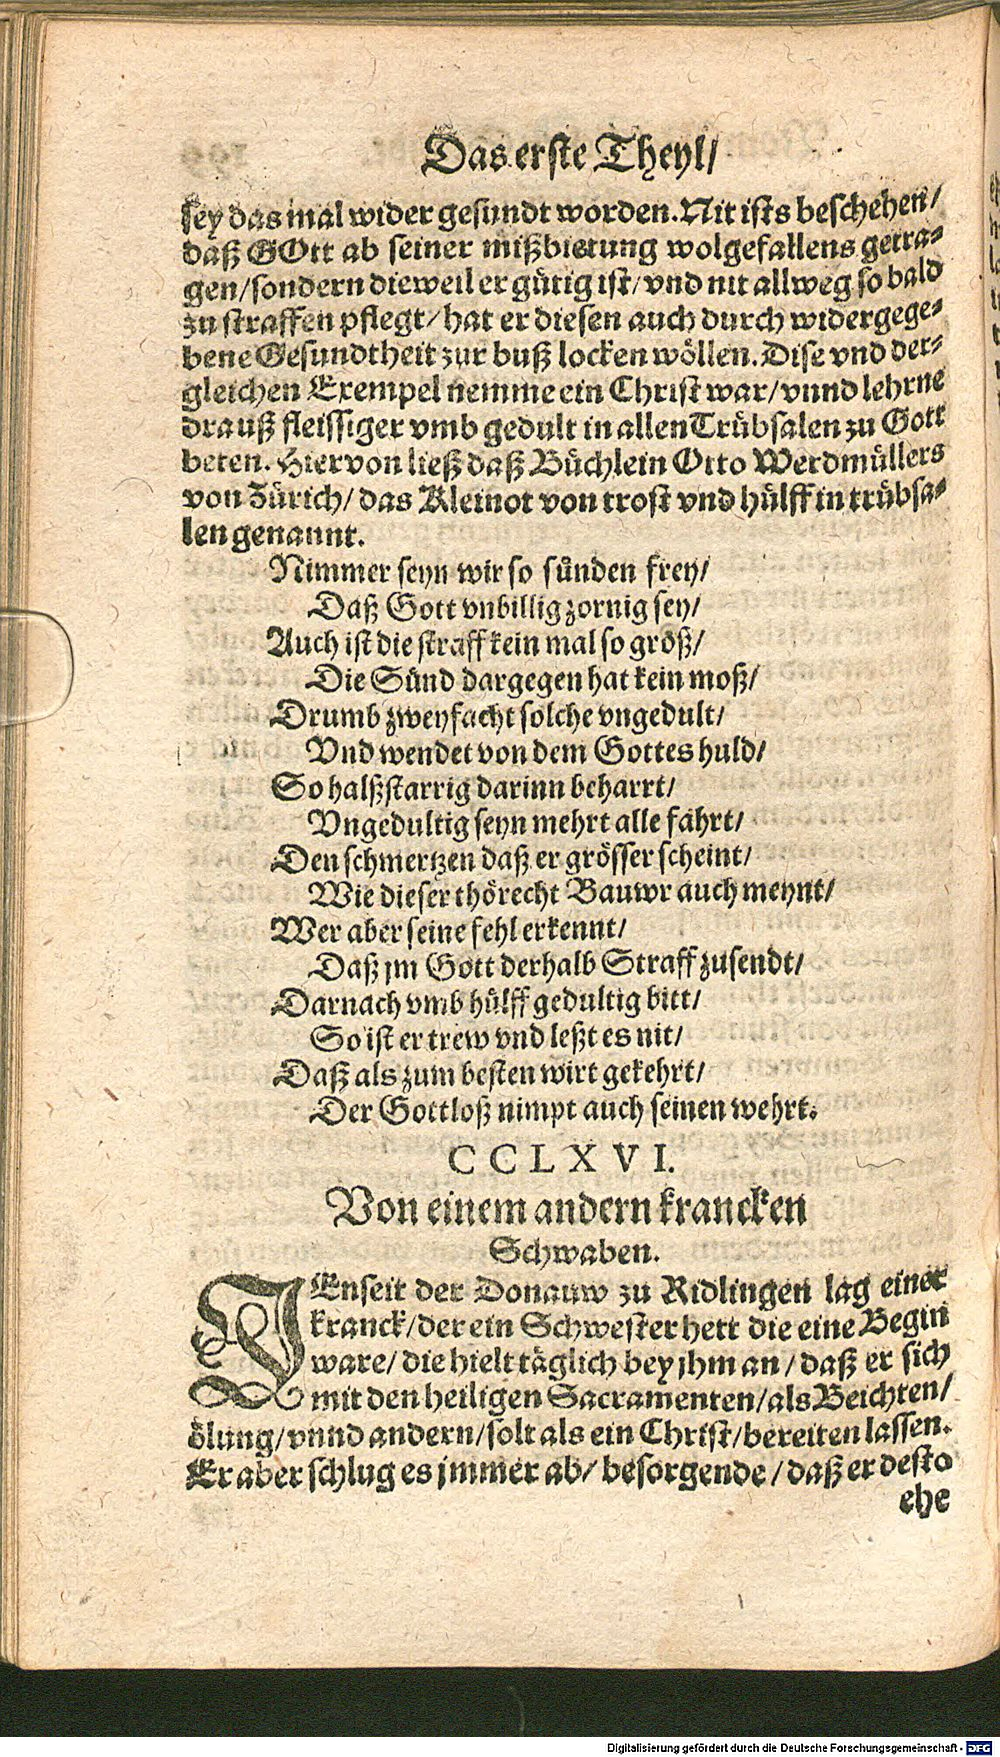 Das erste Theyl/
sey das mal wider gesundt worden. Nit ists beschehen/
daß GOtt ab seiner mißbietung wolgefallens getra-
gen/ sondern dieweil er gütig ist/ vnd nit allweg so bald
zu straffen pflegt/ hat er diesen auch durch widergege-
bene Gesundtheit zur buß locken wöllen. Dise vnd der-
gleichen Exempel nemme ein Christ war/ vnnd lehrne
drauß fleissiger vmb gedult in allen Trübsalen zu Gott
beten. Hiervon ließ daß Büchlein Otto Werdmüllers
von Zürich/ das Kleinot von trost vnd hülff in trübsa-
len genannt.
Nimmer seyn wir so sünden frey/
Daß Gott vnbillig zornig sey/
Auch ist die straff kein mal so größ/
Die Sünd dargegen hat kein moß/
Drumb zweyfacht solche vngedult/
Vnd wendet von dem Gottes huld/
So halßstarrig darinn beharrt/
Vngedultig seyn mehrt alle fährt/
Den schmertzen daß er grösser scheint/
Wie dieser thörecht Bauwr auch meynt/
Wer aber seine fehl erkennt/
Daß jm Gott derhalb Straff zusendt/
Darnach vmb hülff gedultig bitt/
So ist er trew vnd leßt es nit/
Daß als zum besten wirt gekehrt/
Der Gottloß nimpt auch seinen wehrt.
CCLXVI.
Von einem andern krancken
Schwaben.
JEnseit der Donauw zu Ridlingen lag einer
kranck/ der ein Schwester hett die eine Begin
ware/ die hielt täglich bey jhm an/ daß er sich
mit den heiligen Sacramenten/ als Beichten/
ölung/ vnnd andern/ solt als ein Christ/ bereiten lassen.
Er aber schlug es jmmer ab/ besorgende/ daß er desto
ehe
Digitalisierung gefördert durch die Deutsche Forschungsgemeinschaft - DFG